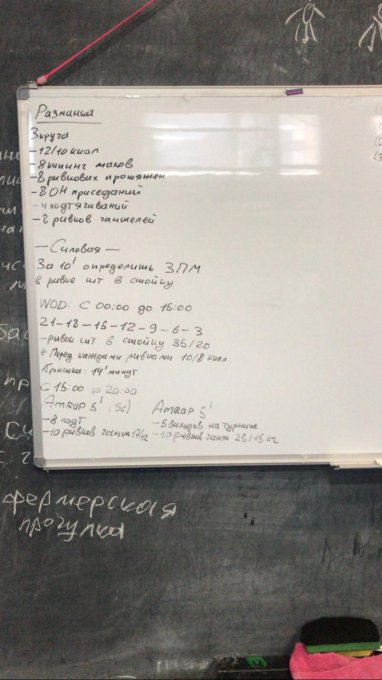 Разминка
3 круга
-12/10 ккал
-8 киппинг махов
-8 рывковых протяжек
-8 OH приседаний
-4 подтягиваний
-8 рывков гантелей
-Силовая-
За 10' определить 3ПМ
в рывке шт в стойку
WOD: С 00:00 до 15:00
21-18-15-12-9-6-3
-рывок шт в стойку 35/20
* Перед каждыми рывками 10/8 ккал
Крышка: 14' минут
С 15:00 до 20:00
AMRAP 5' (Sc)
-8 подт
-10 рывков гантели 17/12
AMRAP 5'
-5 выходов на турнике
-10 рывков гант 25/15 кг
фермерская
прогулка